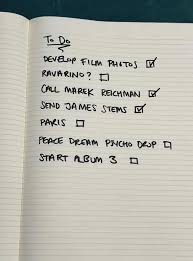 To Do
DEVELOP FILM PHOTOS ☑
RAVARINO? ☐
CALL MAREK REICHMAN ☑
SEND JAMES STEMS ☑
PARIS ☐
PEACE DREAM PSYCHO DROP ☐
START ALBUM 3 ☐